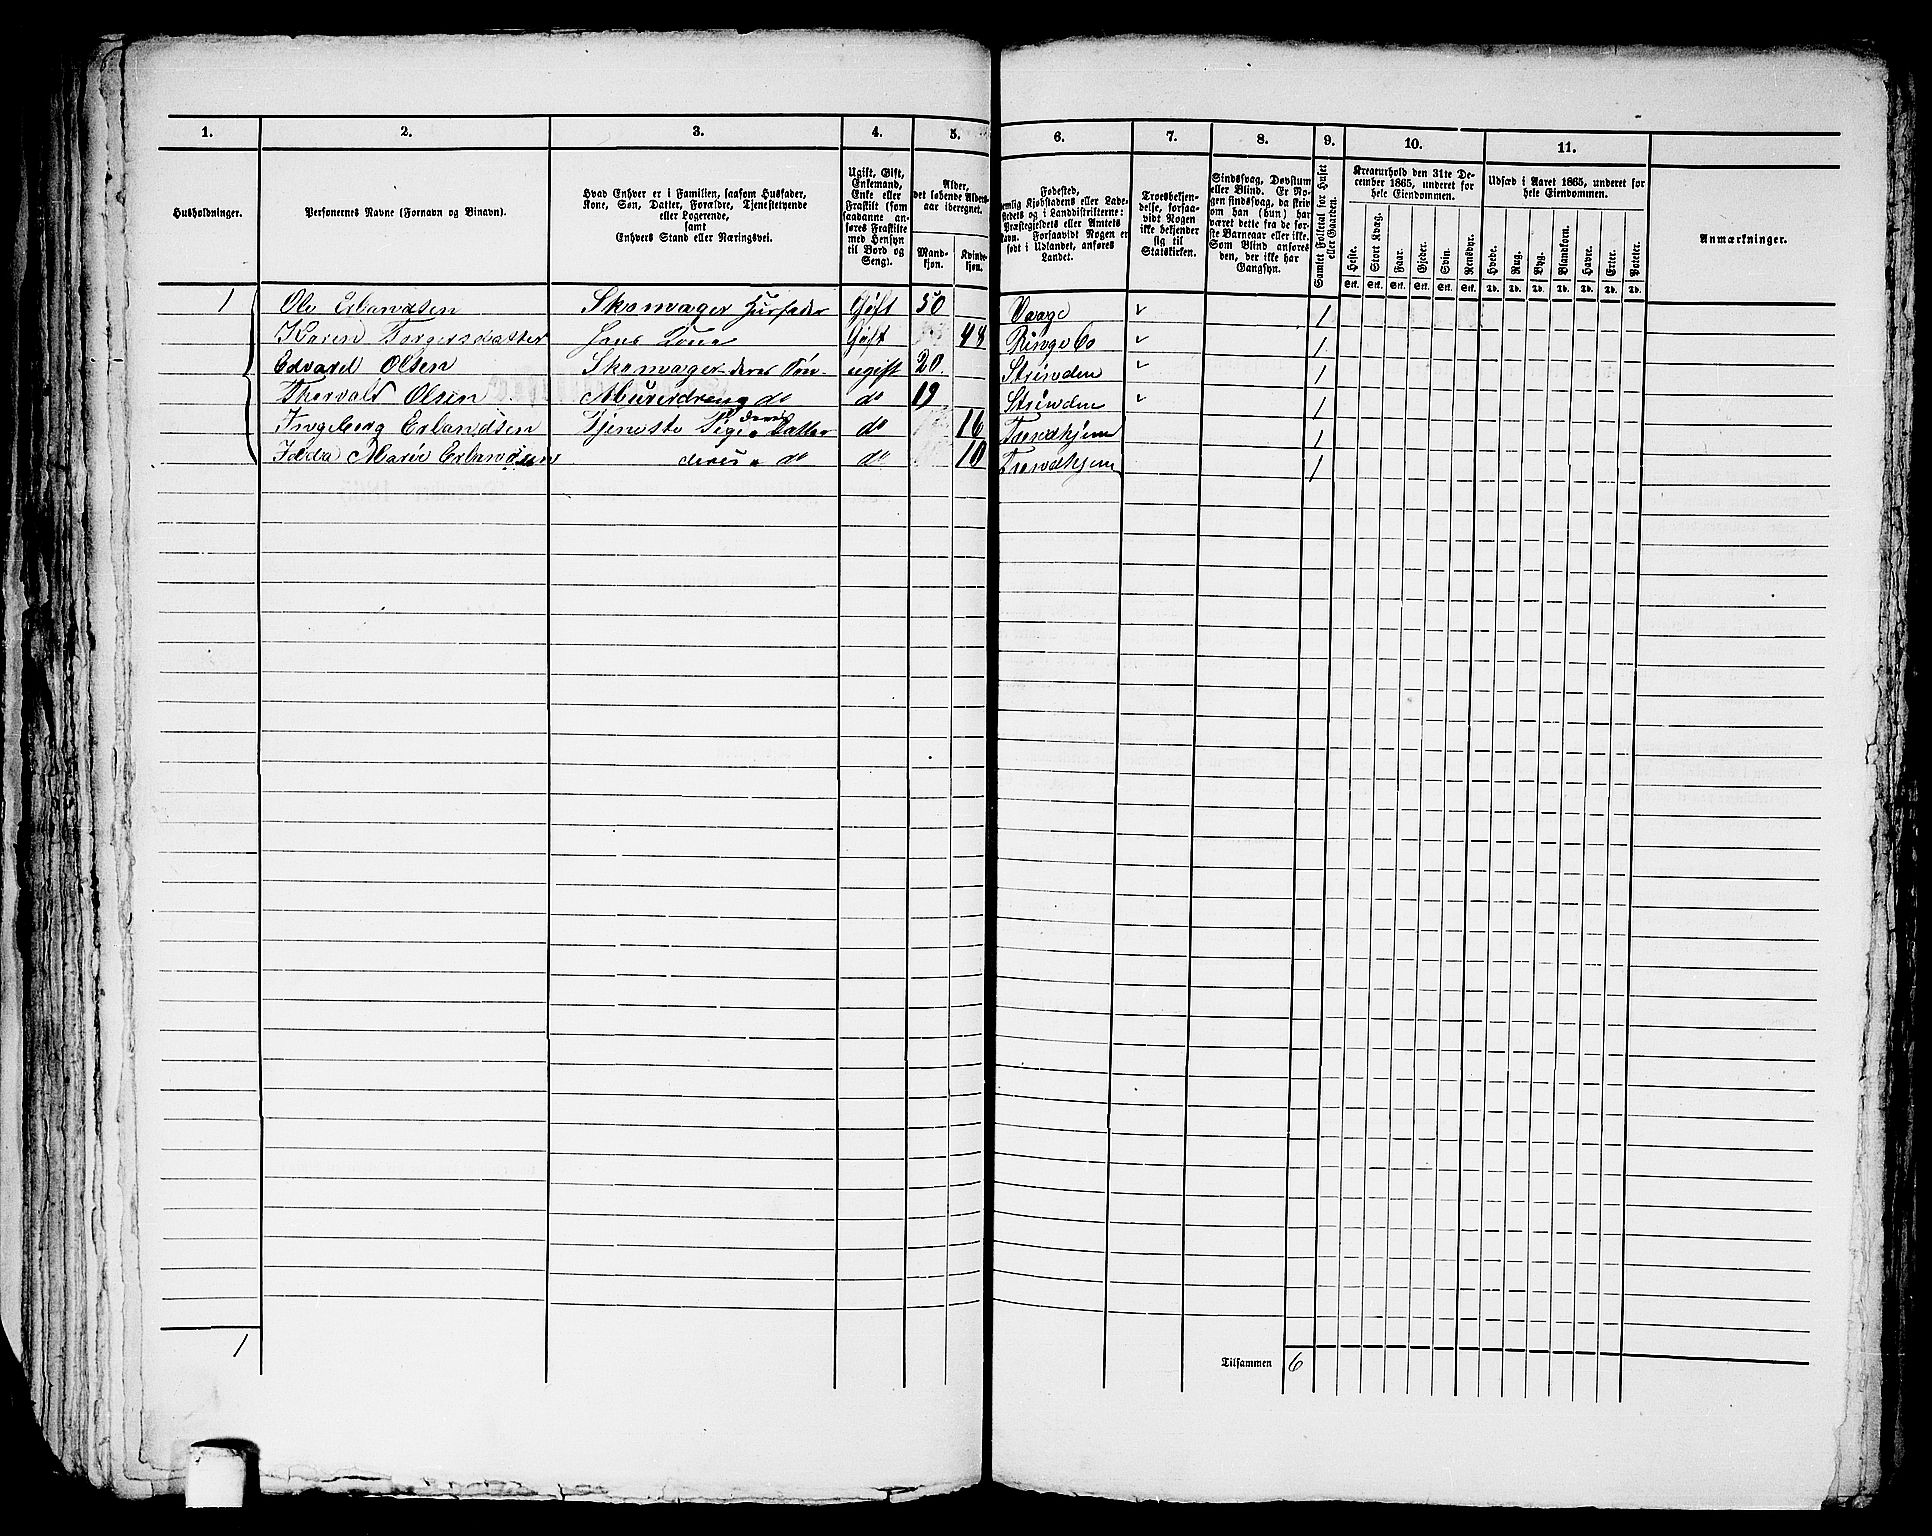 1. 2. 3. 4. 5. 6. 7. 8. 9. 10. 11.
Husholdninger.
Personernes Navne (Fornavn og Binavn).
Hvad Enhver er i Familien, saasom Husfader,
Kone, Søn, Datter, Forældre, Tjenestetyende
eller Logerende,
samt
Enhvers Stand eller Næringsvei.
Ugift, Gift,
Enkemand,
Enke eller
Fraskilt (som
saadanne an-
føres Fraskilte
med Hensyn
til Bord og
Seng).
Alder,
det løbende Alders-
aar iberegnet.
Mand-
kjøn.
Kvinde-
kjøn.
Fødested,
nemlig Kjøbstadens eller Lade-
stedets og i Landdistrikterne:
Præstegjeldets eller Amtets
Navn. Forsaavidt Nogen er
født i Udlandet, anføres
Landet.
Troesbekjen-
delse, forsaa-
vidt Nogen
ikke bekjender
sig til
Statskirken.
Sindssvag, Døvstum
eller Blind. Er No-
gen sindssvag, da skriv
om han (hun) har
været dette fra de før-
ste Barneaar eller ikke.
Som Blind anføres
den, der ikke har
Gangsyn.
Samlet Folketal for Huset
eller Gaarden.
Kreaturhold den 31te De-
cember 1865, underet for
hele Eiendommen.
Heste. Stort Kvæg. Faar. Gjeder. Svin. Rensdyr.
Stk. Stk. Stk. Stk. Stk. Stk.
Udsæd i Aaret 1865, underet for
hele Eiendommen.
Hvede. Rug. Byg. Blandkorn. Havre. Erter. Poteter.
Td. Td. Td. Td. Td. Td. Td.
Anmærkninger.
1 Ole Erlandsen Skomager Husfader Gift 50 Vaage 1
Karen Torgersdatter Hans Kone Gift 48 Ringebo 1
Edvard Olsen Skomager deres Søn ugift 20 Strinden 1
Thorvald Olsen Murerdreng do do 19 Strinden 1
Ingeborg Erlandsen Tjeneste Pige deres Datter do 16 Trondhjem 1
Idda Marie Erlandsen deres do do 10 Trondhjem 1
1
Tilsammen 6